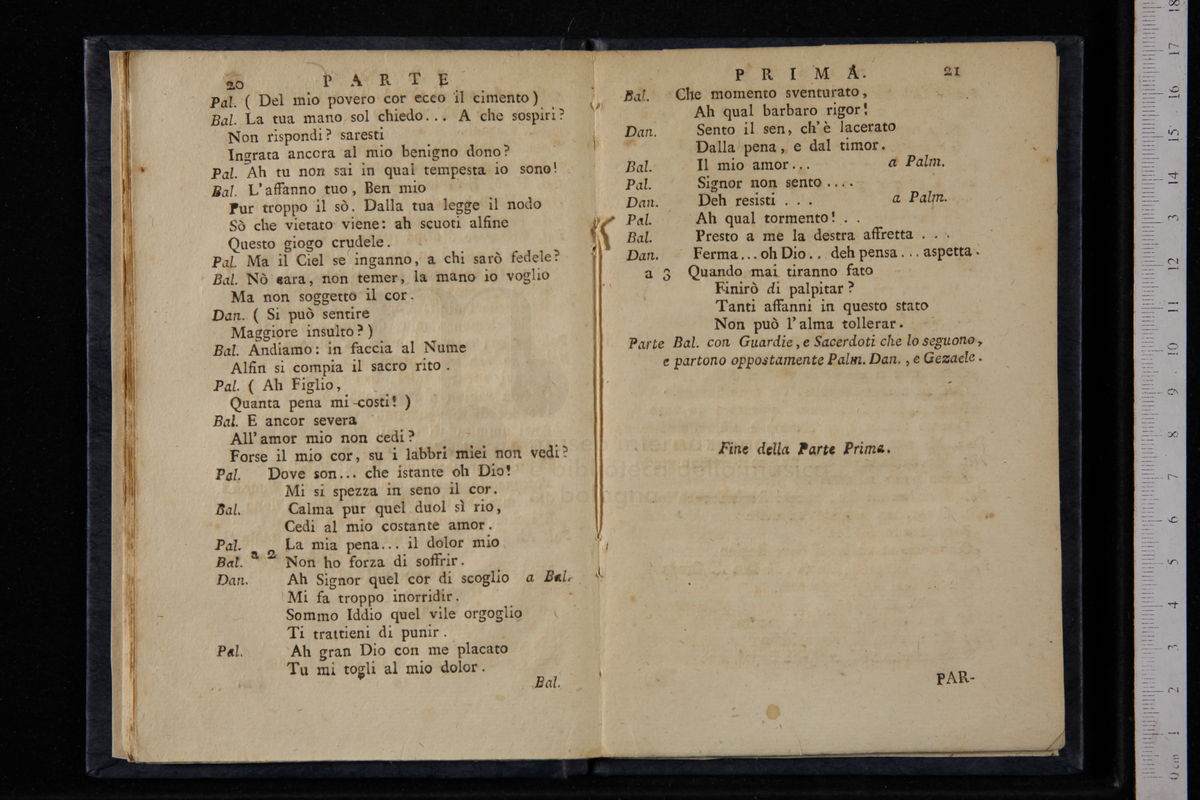 20 PARTE
Pal. ( Del mio povero cor ecco il cimento )
Bal. La tua mano sol chiedo... A che sospiri?
Non rispondi? saresti
Ingrata ancora al mio benigno dono?
Pal. Ah tu non sai in qual tempesta io sono!
Bal. L'affanno tuo, Ben mio
Pur troppo il sò. Dalla tua legge il nodo
Sò che vietato viene: ah scuoti alfine
Questo giogo crudele.
Pal. Ma il Ciel se inganno, a chi sarò fedele?
Bal. Nò cara, non temer, la mano io voglio
Ma non soggetto il cor.
Dan. ( Si può sentire
Maggiore insulto? )
Bal. Andiamo: in faccia al Nume
Alfin si compia il sacro rito.
Pal. ( Ah Figlio,
Quanta pena mi costi! )
Bal. E ancor severa
All'amor mio non cedi?
Forse il mio cor, su i labbri miei non vedi?
Pal. Dove son... che istante oh Dio!
Mi si spezza in seno il cor.
Bal. Calma pur quel duol sì rio,
Cedi al mio costante amor.
Pal. La mia pena... il dolor mio
Bal. a 2 Non ho forza di soffrir.
Dan. Ah Signor quel cor di scoglio a Bal.
Mi fa troppo inorridir.
Sommo Iddio quel vile orgoglio
Ti trattieni di punir.
Pal. Ah gran Dio con me placato
Tu mi togli al mio dolor.
Bal.
PRIMA. 21
Bal. Che momento sventurato,
Ah qual barbaro rigor!
Dan. Sento il sen, ch'è lacerato
Dalla pena, e dal timor.
Bal. Il mio amor... a Palm.
Pal. Signor non sento ....
Dan. Deh resisti . . . a Palm.
Pal. Ah qual tormento! . .
Bal. Presto a me la destra affretta . . .
Dan. Ferma... oh Dio.. deh pensa... aspetta.
a 3 Quando mai tiranno fato
Finirò di palpitar?
Tanti affanni in questo stato
Non può l'alma tollerar.
Parte Bal. con Guardie, e Sacerdoti che lo seguono,
e partono oppostamente Palm. Dan., e Gezaele.
Fine della Parte Prima.
PAR-